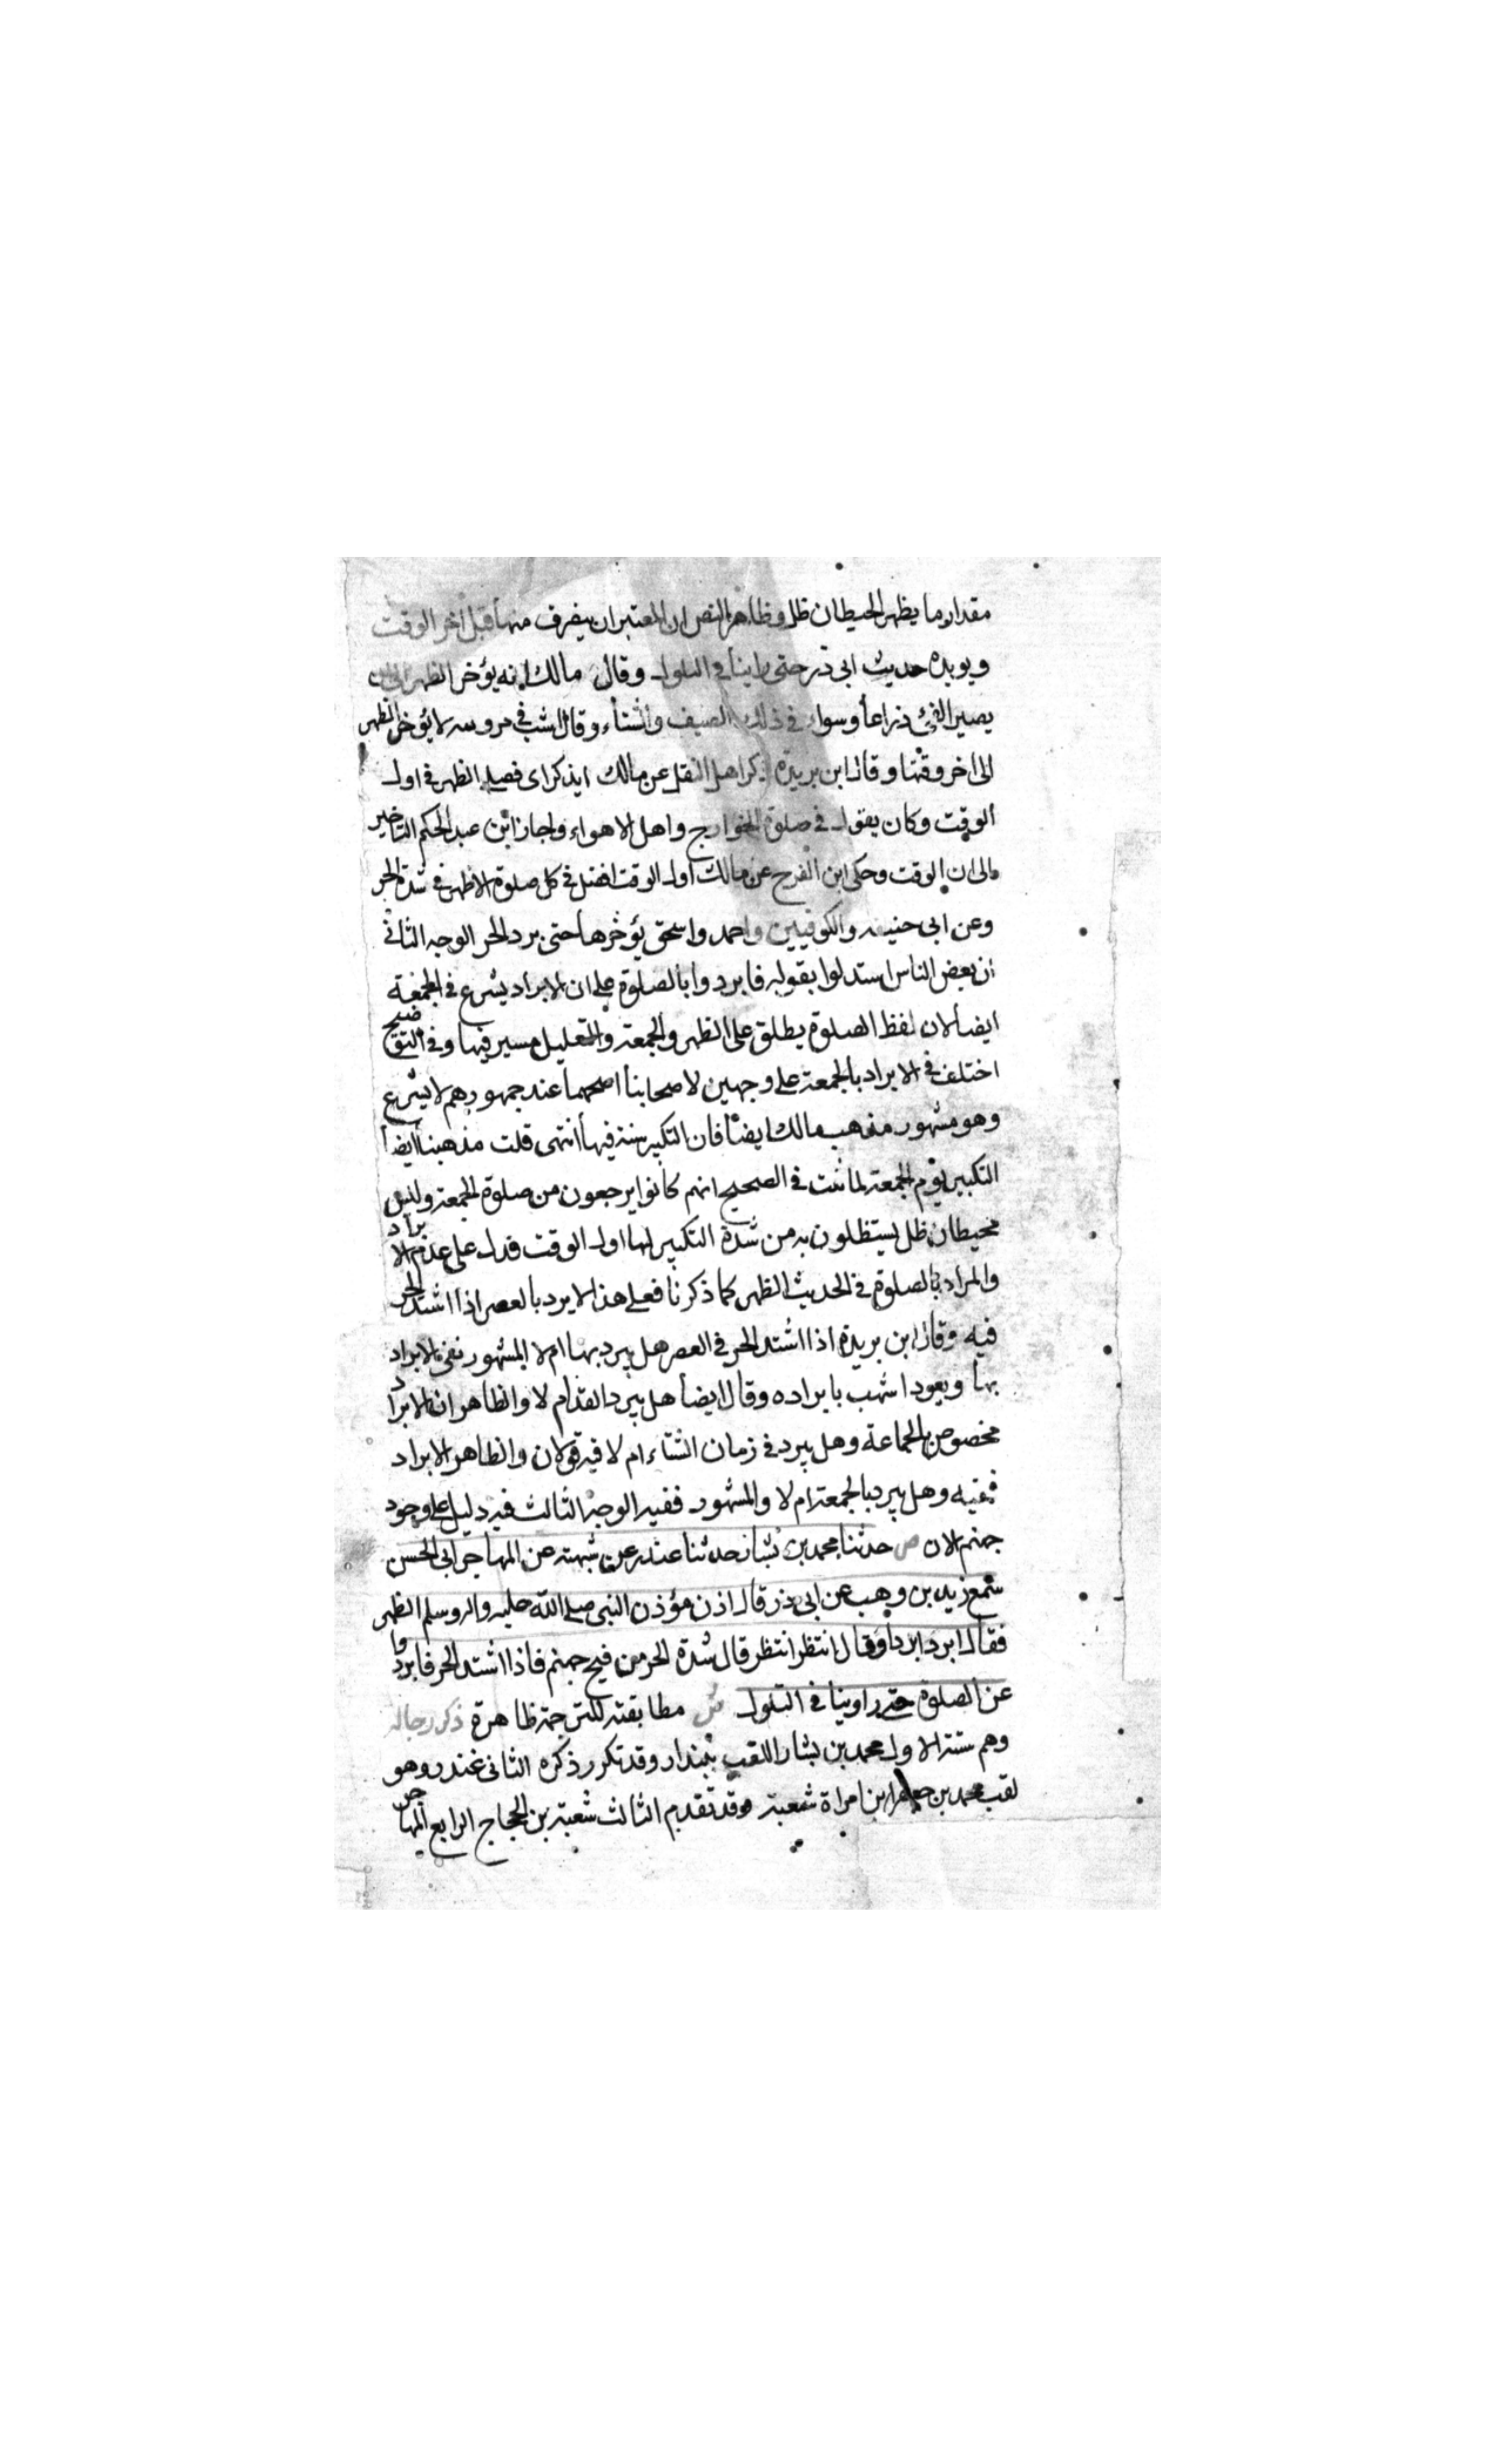 مقدار ما يظهر الحيطان ظل وظاهر النص ان المعتبر ان ينصرف منها قبل اخر الوقت
ويويده حديث ابى ذر حتى راينا فى التلول وقال مالك انه يؤخر الظهر الى ان
يصير الفئ ذراعا وسواء فى ذلك الصيف والشتاء وقال اشب فى لا يؤخر الظهر
الى اخر وقتها وقال ابن بريدة ذكر اهل النقل عن مالك انه ذكر اى فصل الظهر فى اول
الوقت وكان يقول فى صلوة الخوارج واهل الاهواء واجاز ابن عبد الحكم التاخير
الى ان الوقت وحكى ابن الفرح عن مالك اول الوقت افضل فى كل صلوة الا ظهر فى شدة الحر
وعن ابى حنيفه والكوفيين واحمد واسحق يؤخرها حتى برد الحر الوجه الثانى
ان بعض الناس استدلوا بقوله فابردوا بالصلوة على ان الابراد يشرع فى الجمعة
ايضا لان لفظ الصلوة يطلق على الظهر والجمعة والتعليل مسير فيها وفى التوضيح
اختلف فى الابراد بالجمعة على وجهين لاصحابنا اصحهما عند جمهورهم لا يشرع
وهو مشهور مذهب مالك ايضا فان التكبير سنة فيها انتهى قلت مذهبنا ايضا
التكبير يوم الجمعة لما ثبت فى الصحيح انهم كانوا يرجعون من صلوة الجمعة وليس
محيطان ظل يستظلون به من شدة التكبير لها اول الوقت فدل على عدم الابراد
والمراد بالصلوة فى الحديث الظهر كما ذكرنا فعلى هذا لا يرد بالعصر اذا اشتد الحر
فيه وقال ابن بريدة اذا اشتد الحر فى العصر هل يبرد بها ام لا المشهور نفى الابراد
بها ويعود اشهب بابراده وقال ايضا هل يبرد الفذ ام لا والظاهر ان الابراد
مخصوص بالجماعة وهل يبرد فى زمان الشتاء ام لا فيه قولان والظاهر الابراد
فقيه وهل يبرد بالجمعة ام لا والمشهور ففيه الوجه الثالث فيه دليل على وجود
جهنم الان ص حدثنا محمد بن بشار حدثنا غندر عن شبهة عن المهاجر ابى الحسن
سمع زيد بن وهب عن ابى ذر قال اذن مؤذن النبى صلى الله عليه واله وسلم الظهر
فقال ابرد ابرد او قال انتظر انتظر قال شدة الحر من فيح جهنم فاذا اشتد الحر فابردوا
عن الصلوة حتى راوينا فى التلول ش مطابقته للترجمة ظاهرة ذكر رجاله
وهم ستة الاول محمد بن بشار اللقب ببندار وقد تكرر ذكره الثانى غندر وهو
لقب محمد بن جعفر ابن امراة شعبة وقد تقدم الثالث شعبة بن الحجاج الرابع المهاجر